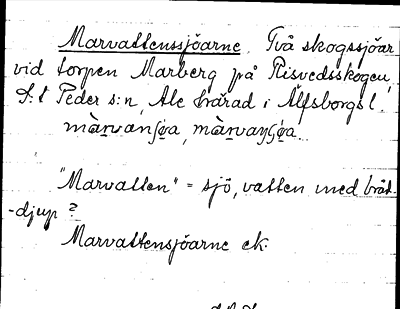 Marvattenssjöarne. Två skogssjöar
vid torpen Marberg på Risvedsskogen,
S:t Peder s:n, Ale härad i Älfsborgs l.
"Marvatten" = sjö, vatten med bråt-
-djup?
Marvattensjöarne ek.